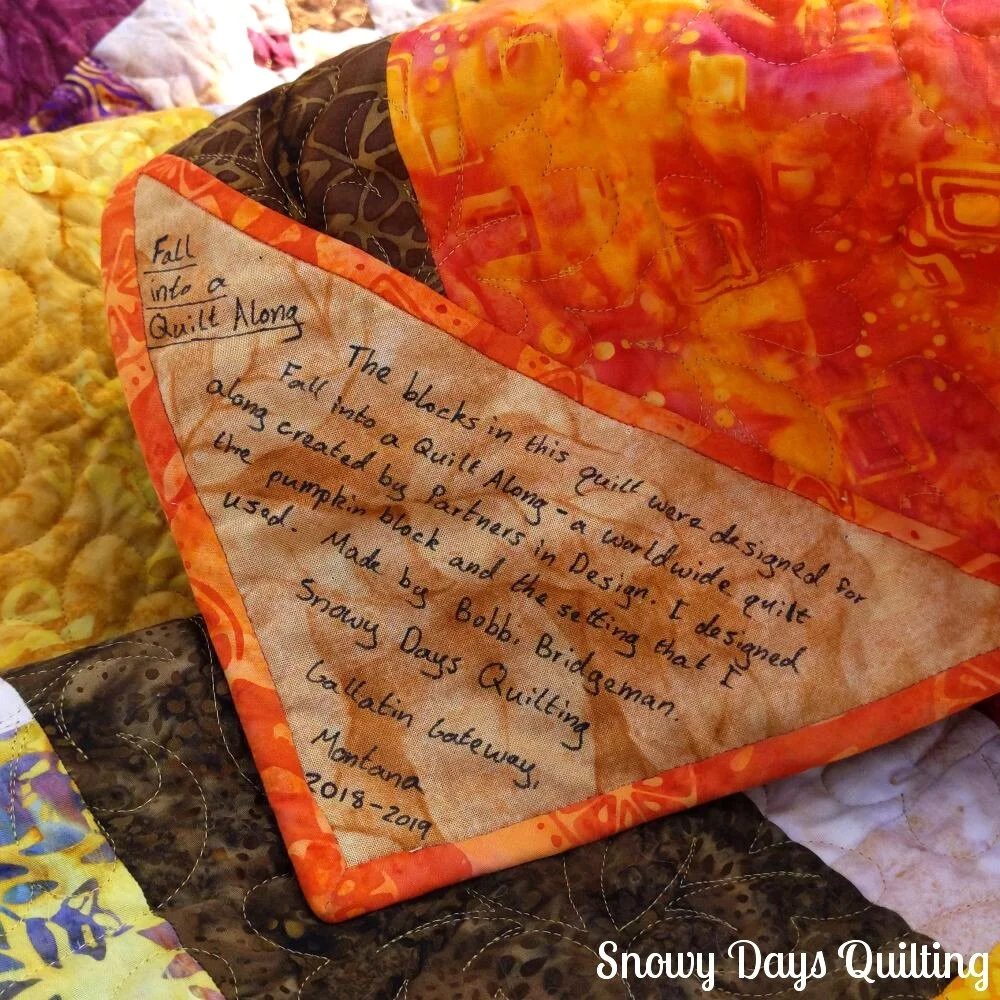 Fall
into a
Quilt Along
The blocks in this quilt were designed for
Fall into a Quilt Along - a worldwide quilt
along created by Partners in Design. I designed
the pumpkin block and the setting that I
used. Made by Bobbi Bridgeman.
Snowy Days Quilting
Gallatin Gateway,
Montana
2018-2019
Snowy Days Quilting